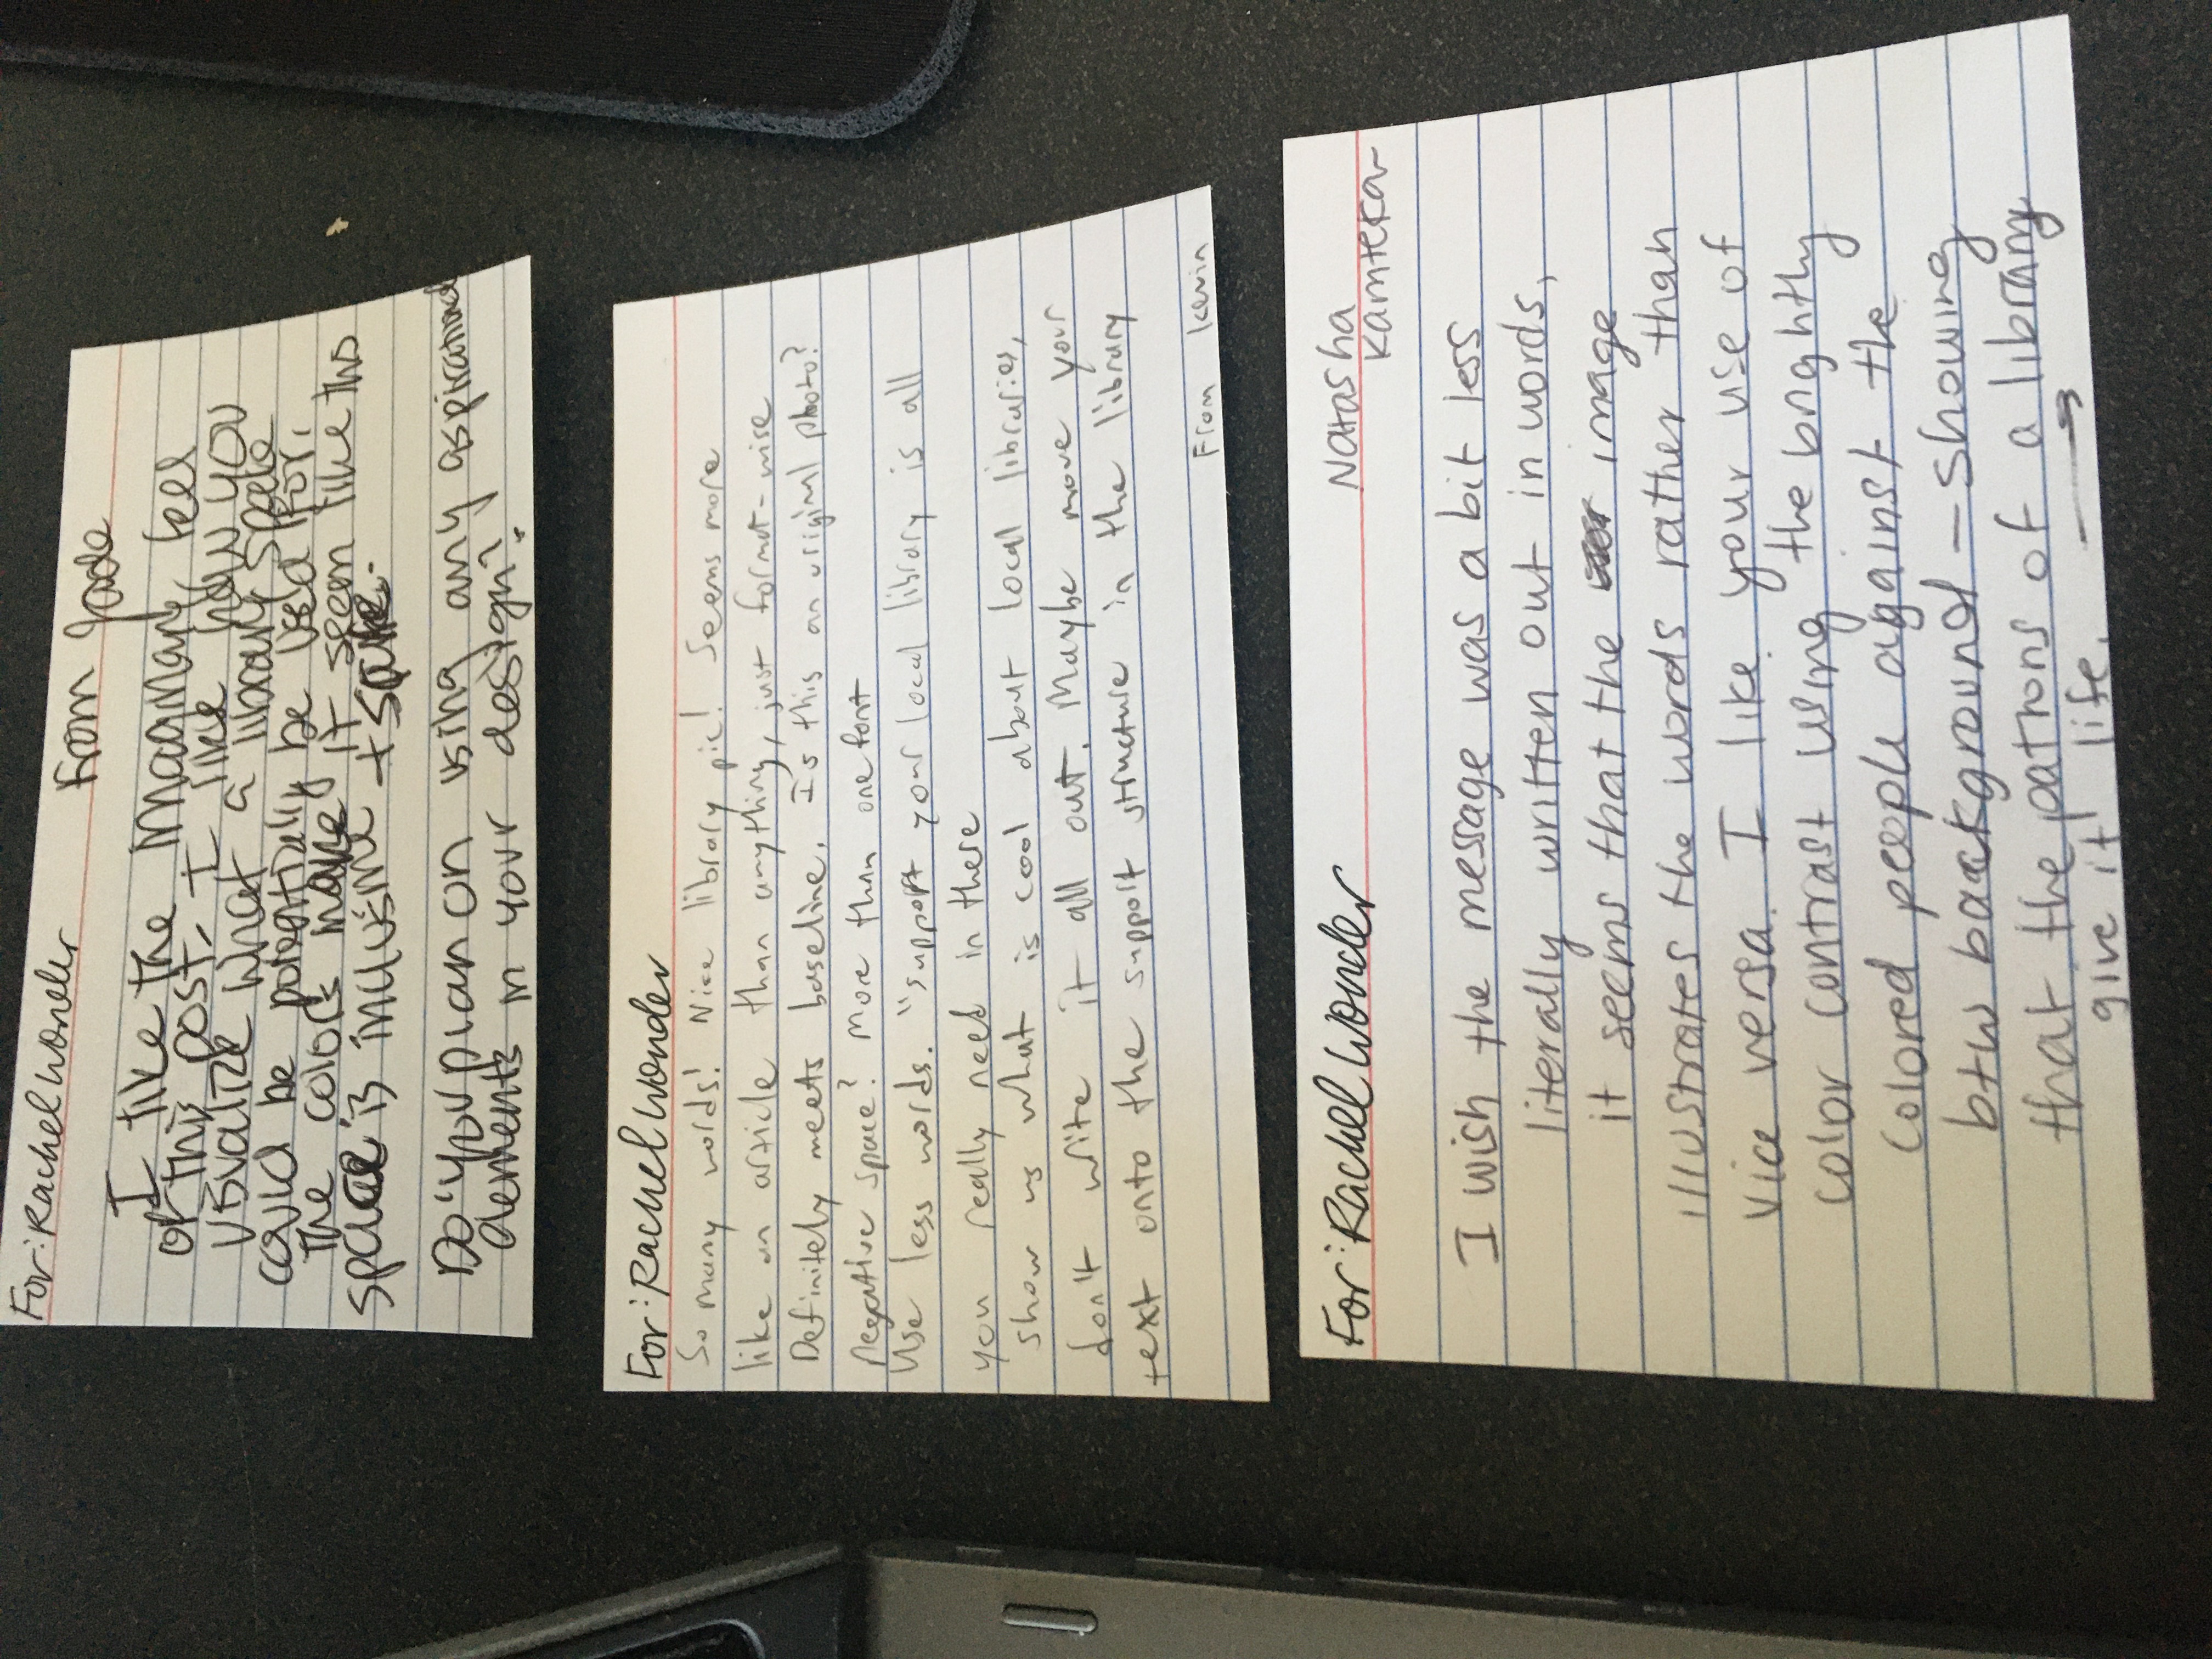 For: Rachel Wonder
From Jade
I like the imaginary feel
of this post. I like how you
visualize what a library space
could be potentially be used for.
The colors make it seem like this
space is inclusive + safe.
Do you plan on using any aspirational
elements in your design?
For: Rachel Wonder
So many words! Nice library pic! Seems more
like an article than anything, just format-wise
Definitely meets baseline. Is this an original photo?
negative space? More than one font
Use less words. "support your local library is all
you really need in there
show us what is cool about local libraries,
don't write it all out. Maybe move your
text onto the support structure in the library
From Kevin
For: Rachel Wonder
Natasha
Kamtekar
I wish the message was a bit less
literally written out in words,
it seems that the image
illustrates the words rather than
vice versa. I like your use of
color contrast using the brightly
colored people against the
b+w background - showing
that the patrons of a library
give it life.